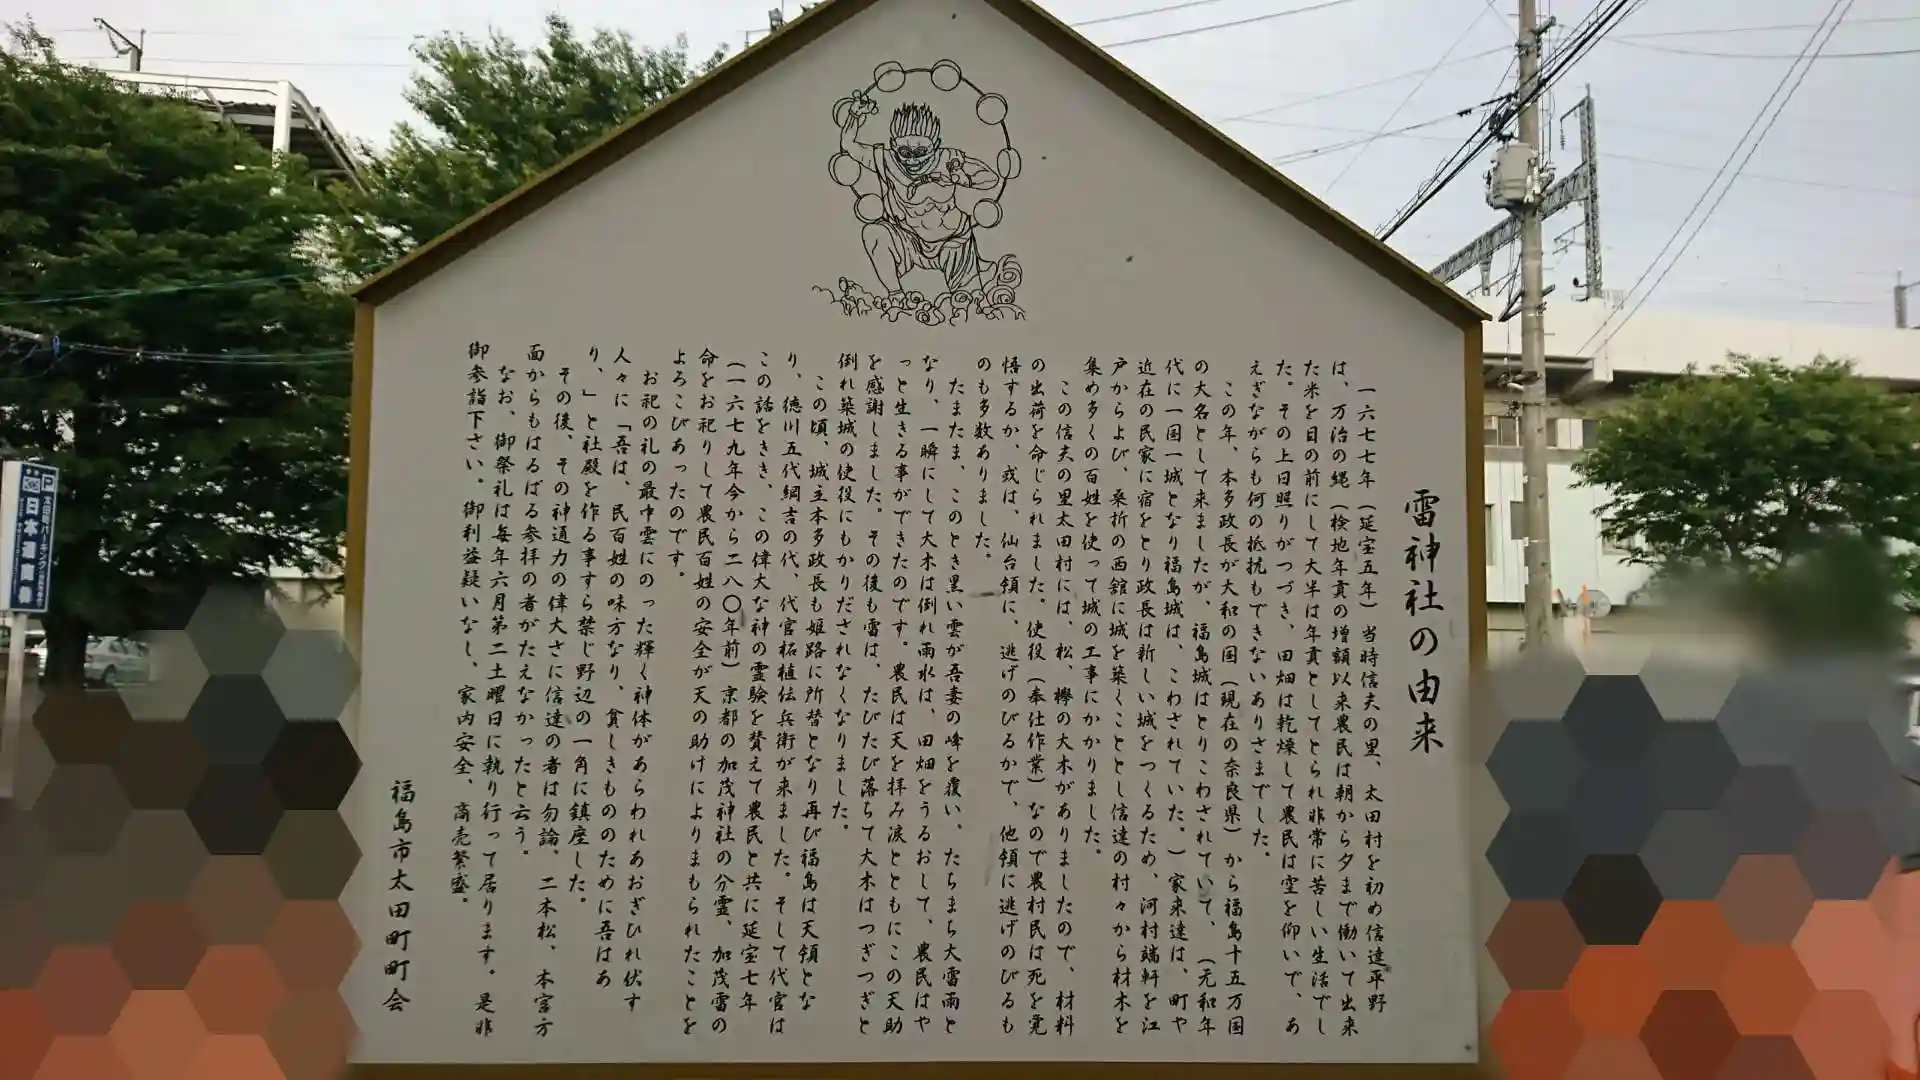 雷神社の由来
一六七七年（延宝五年）当時信夫の里、太田村を初め信達平野
は、万治の縄（検地年貢の増額以来農民は朝から夕まで働いて出来
た米を目の前にして大半は年貢としてとられ非常に苦しい生活でし
た。その上日照りがつづき、田畑は乾燥して農民は空を仰いで、あ
えぎながらも何の抵抗もできないありさまでした。
この年、本多政長が大和の国（現在の奈良県）から福島十五万国
の大名として来ましたが、福島城はとりこわされていて、（元和年
代に一国一城となり福島城は、こわされていた。）家来達は、町や
近在の民家に宿をとり政長は新しい城をつくるため、河村端軒を江
戸からよび、桑折の西舘に城を築くこととし信達の村々から材木を
集め多くの百姓を使って城の工事にかかりました。
この信夫の里太田村には、松、欅の大木がありましたので、材料
の出荷を命じられました。使役（奉仕作業）なので農村民は死を覚
悟するか、或は、仙台領に、逃げのびるかで、他領に逃げのびるも
のも多数ありました。
たまたま、このとき黒い雲が吾妻の峰を覆い、たちまち大雷雨と
なり、一瞬にして大木は倒れ雨水は、田畑をうるおして、農民はや
っと生きる事ができたのです。農民は天を拝み涙とともにこの天助
を感謝しました。その後も雷は、たびたび落ちて大木はつぎつぎと
倒れ築城の使役にもかりだされなくなりました。
この頃、城主本多政長も姫路に所替となり再び福島は天領とな
り、徳川五代綱吉の代、代官柘植伝兵衛が来ました。そして代官は
この話をきき、この偉大な神の霊験を賛えて農民と共に延宝七年
（一六七九年今から二八〇年前）京都の加茂神社の分霊、加茂雷の
命をお祀りして農民百姓の安全が天の助けによりまもられたことを
よろこびあったのです。
お祀の礼の最中雲にのった輝く神体があらわれあおぎひれ伏す
人々に「吾は、民百姓の味方なり、貧しきもののために吾はあ
り、」と社殿を作る事すら禁じ野辺の一角に鎮座した。
その後、その神通力の偉大さに信達の者は勿論、二本松、本宮方
面からもはるばる参拝の者がたえなかったと云う。
なお、御祭礼は毎年六月第二土曜日に執り行って居ります。是非
御参詣下さい。御利益疑いなし、家内安全、商売繁盛。
福島市太田町町会
P
太田町パーキング